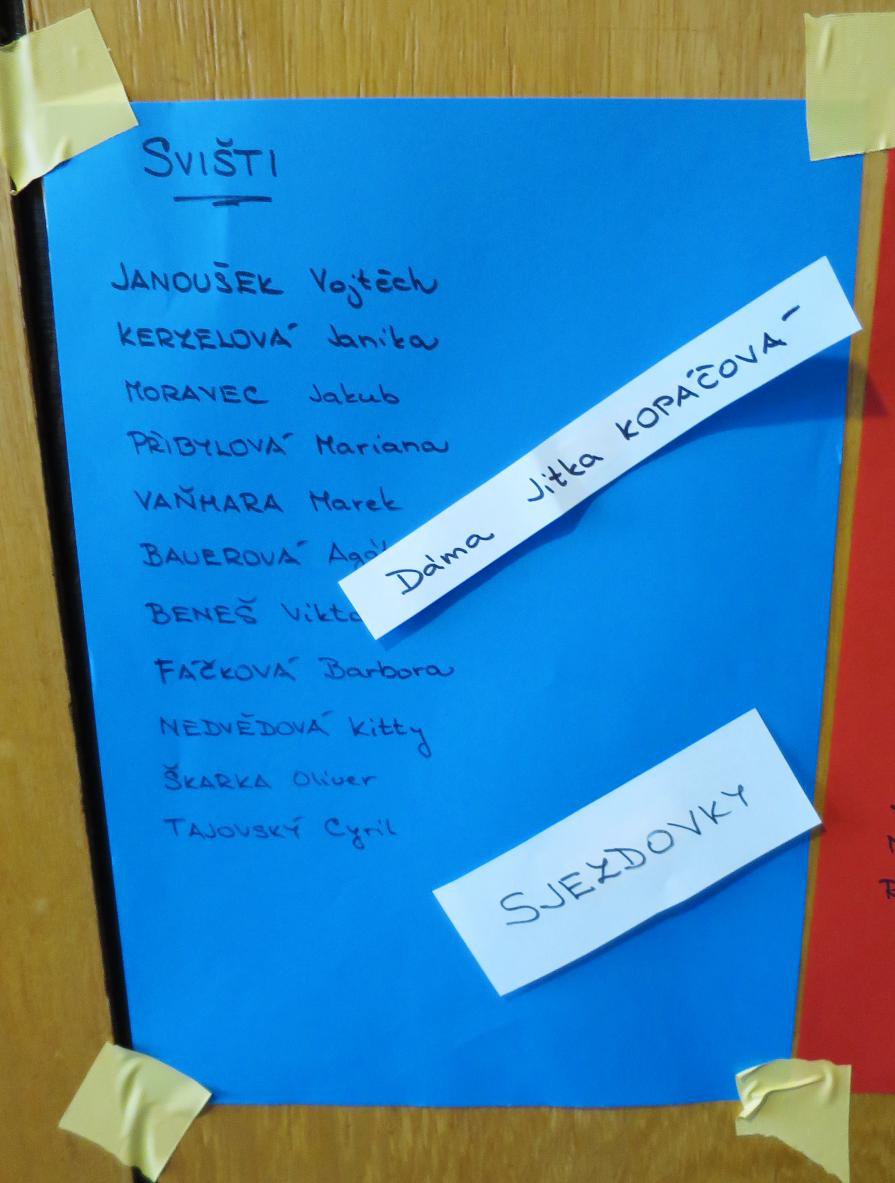 SVIŠTI
JANOUŠEK Vojtěch
KERZELOVÁ Janika
MORAVEC Jakub
PŘIBYLOVÁ Mariana
VAŇHARA Marek
BAUEROVÁ
BENEŠ
FAČKOVÁ Barbora
NEDVĚDOVÁ Kitty
ŠKARKA Oliver
TAJOVSKÝ Cyril
Dáma Jitka KOPÁČOVÁ
SJEZDOVKY